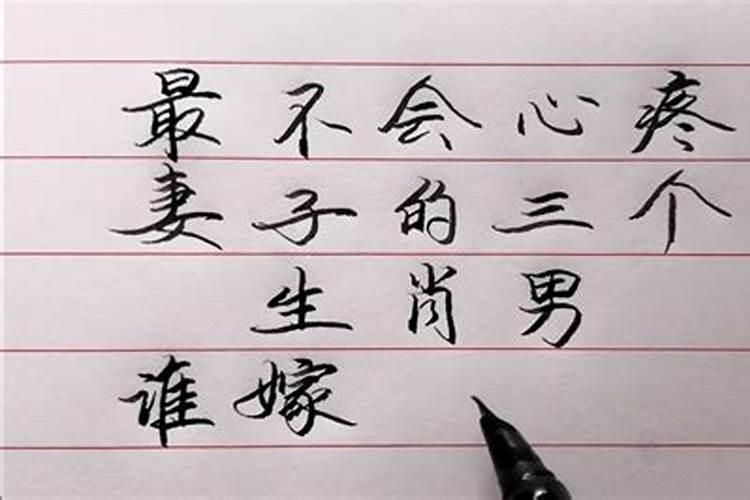 最不会心疼
妻子的三个
生肖男
谁嫁